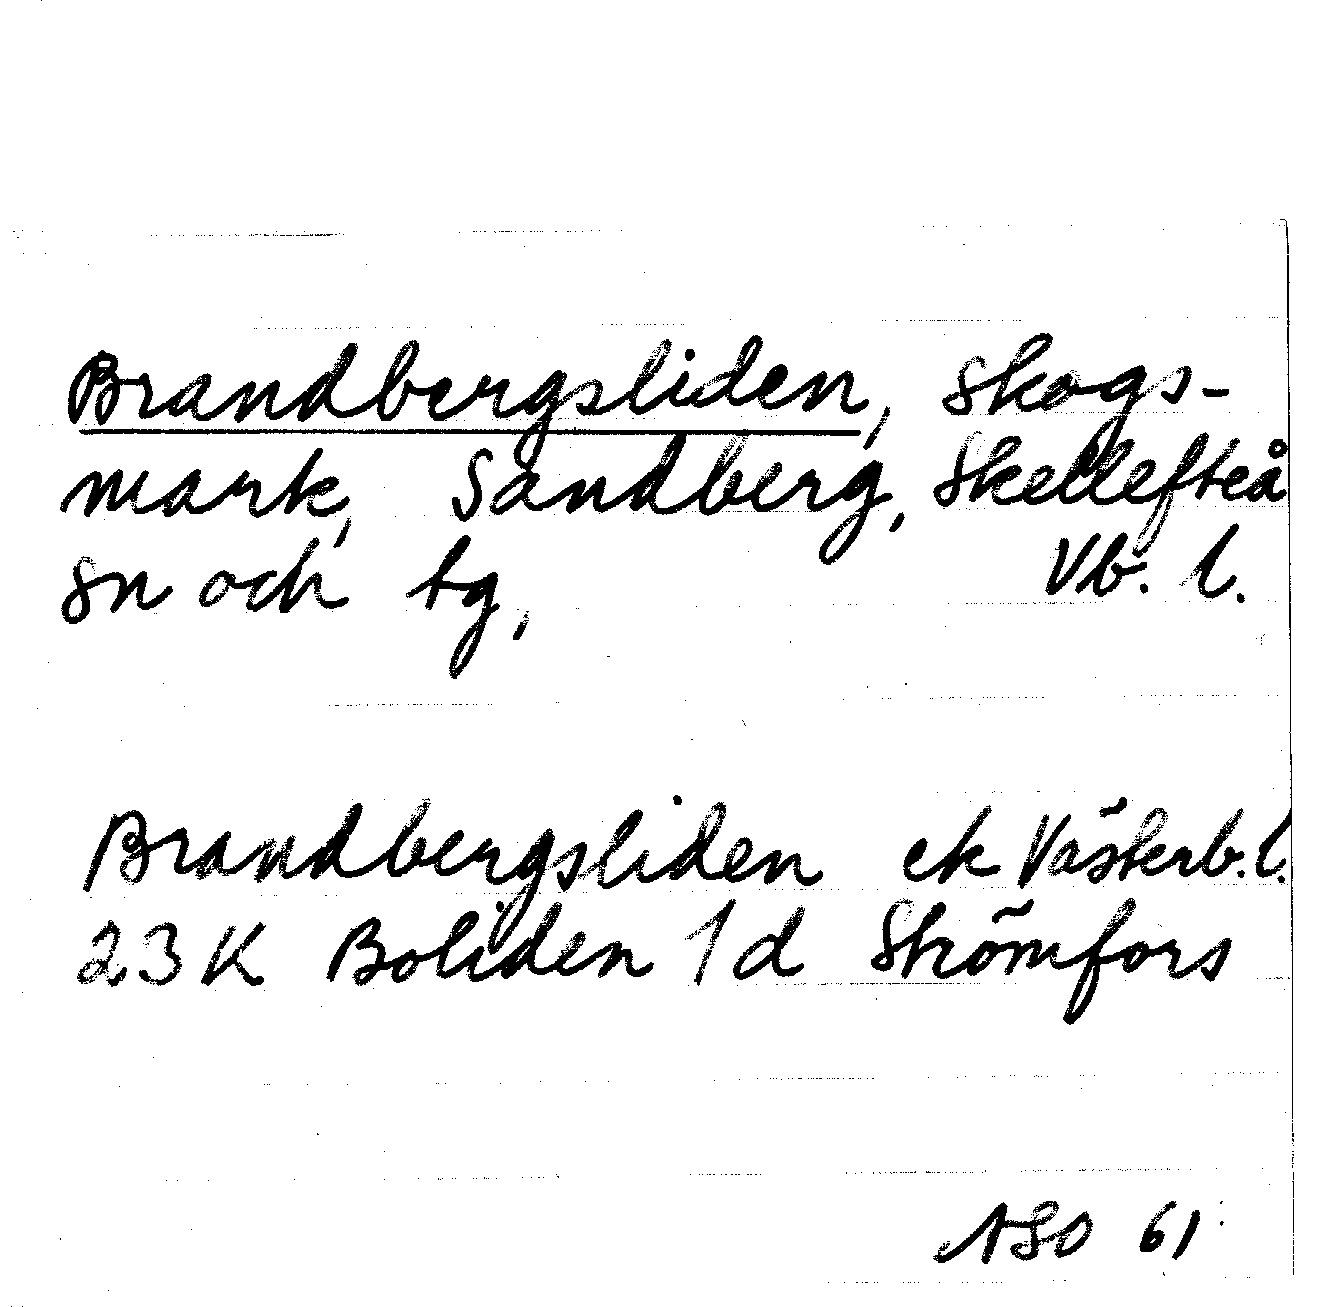 Brandbergsliden, skogs-
mark, Sandberg, Skellefteå
sn och tg, Vb. l.
Brandbergsliden ek Västerb. l.
23 K Boliden 1 d Strömfors
ASO 61